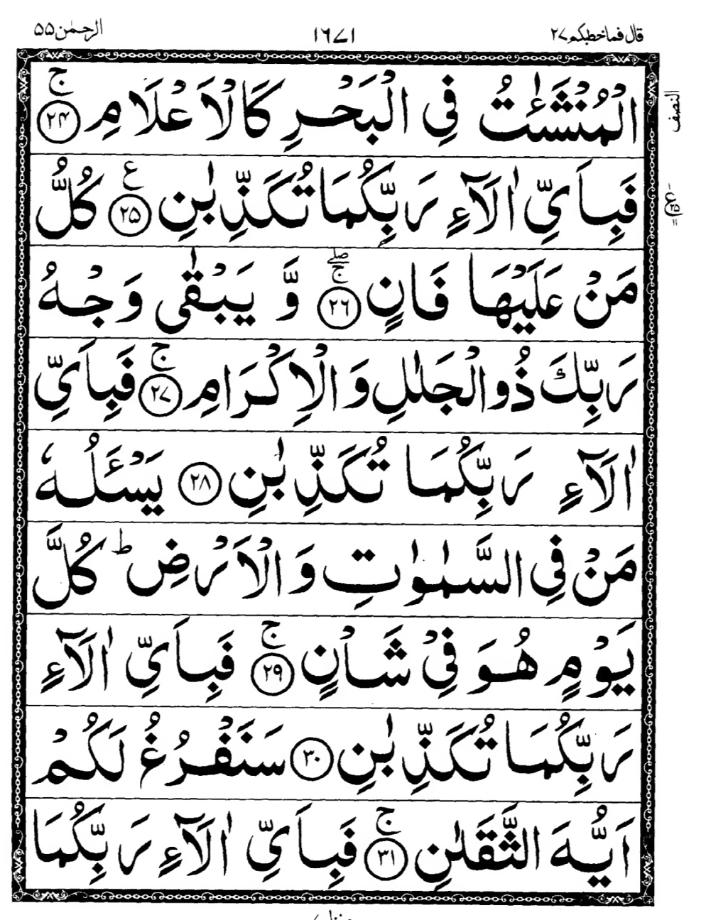 قال فماخطبكم ٢٧ ١٦٧١ الرحمٰن ٥٥
الْمُنْشَـٰٔتُ فِي الْبَحْرِ كَالْاَعْلَامِ ۚ ﴿٢٤﴾
النصف
فَبِاَيِّ اٰلَآءِ رَبِّكُمَا تُكَذِّبٰنِ ﴿٢٥﴾ ع كُلُّ
مَنْ عَلَيْهَا فَانٍ ﴿٢٦﴾ ۖۚ وَّ يَبْقٰى وَجْهُ
رَبِّكَ ذُو الْجَلٰلِ وَ الْاِكْرَامِ ۚ ﴿٢٧﴾ فَبِاَيِّ
اٰلَآءِ رَبِّكُمَا تُكَذِّبٰنِ ﴿٢٨﴾ يَسْـَٔلُهٗ
مَنْ فِي السَّمٰوٰتِ وَ الْاَرْضِ ؕ كُلَّ
يَوْمٍ هُوَ فِيْ شَاْنٍ ۚ ﴿٢٩﴾ فَبِاَيِّ اٰلَآءِ
رَبِّكُمَا تُكَذِّبٰنِ ﴿٣٠﴾ سَنَفْرُغُ لَكُمْ
اَيُّهَ الثَّقَلٰنِ ۚ ﴿٣١﴾ فَبِاَيِّ اٰلَآءِ رَبِّكُمَا